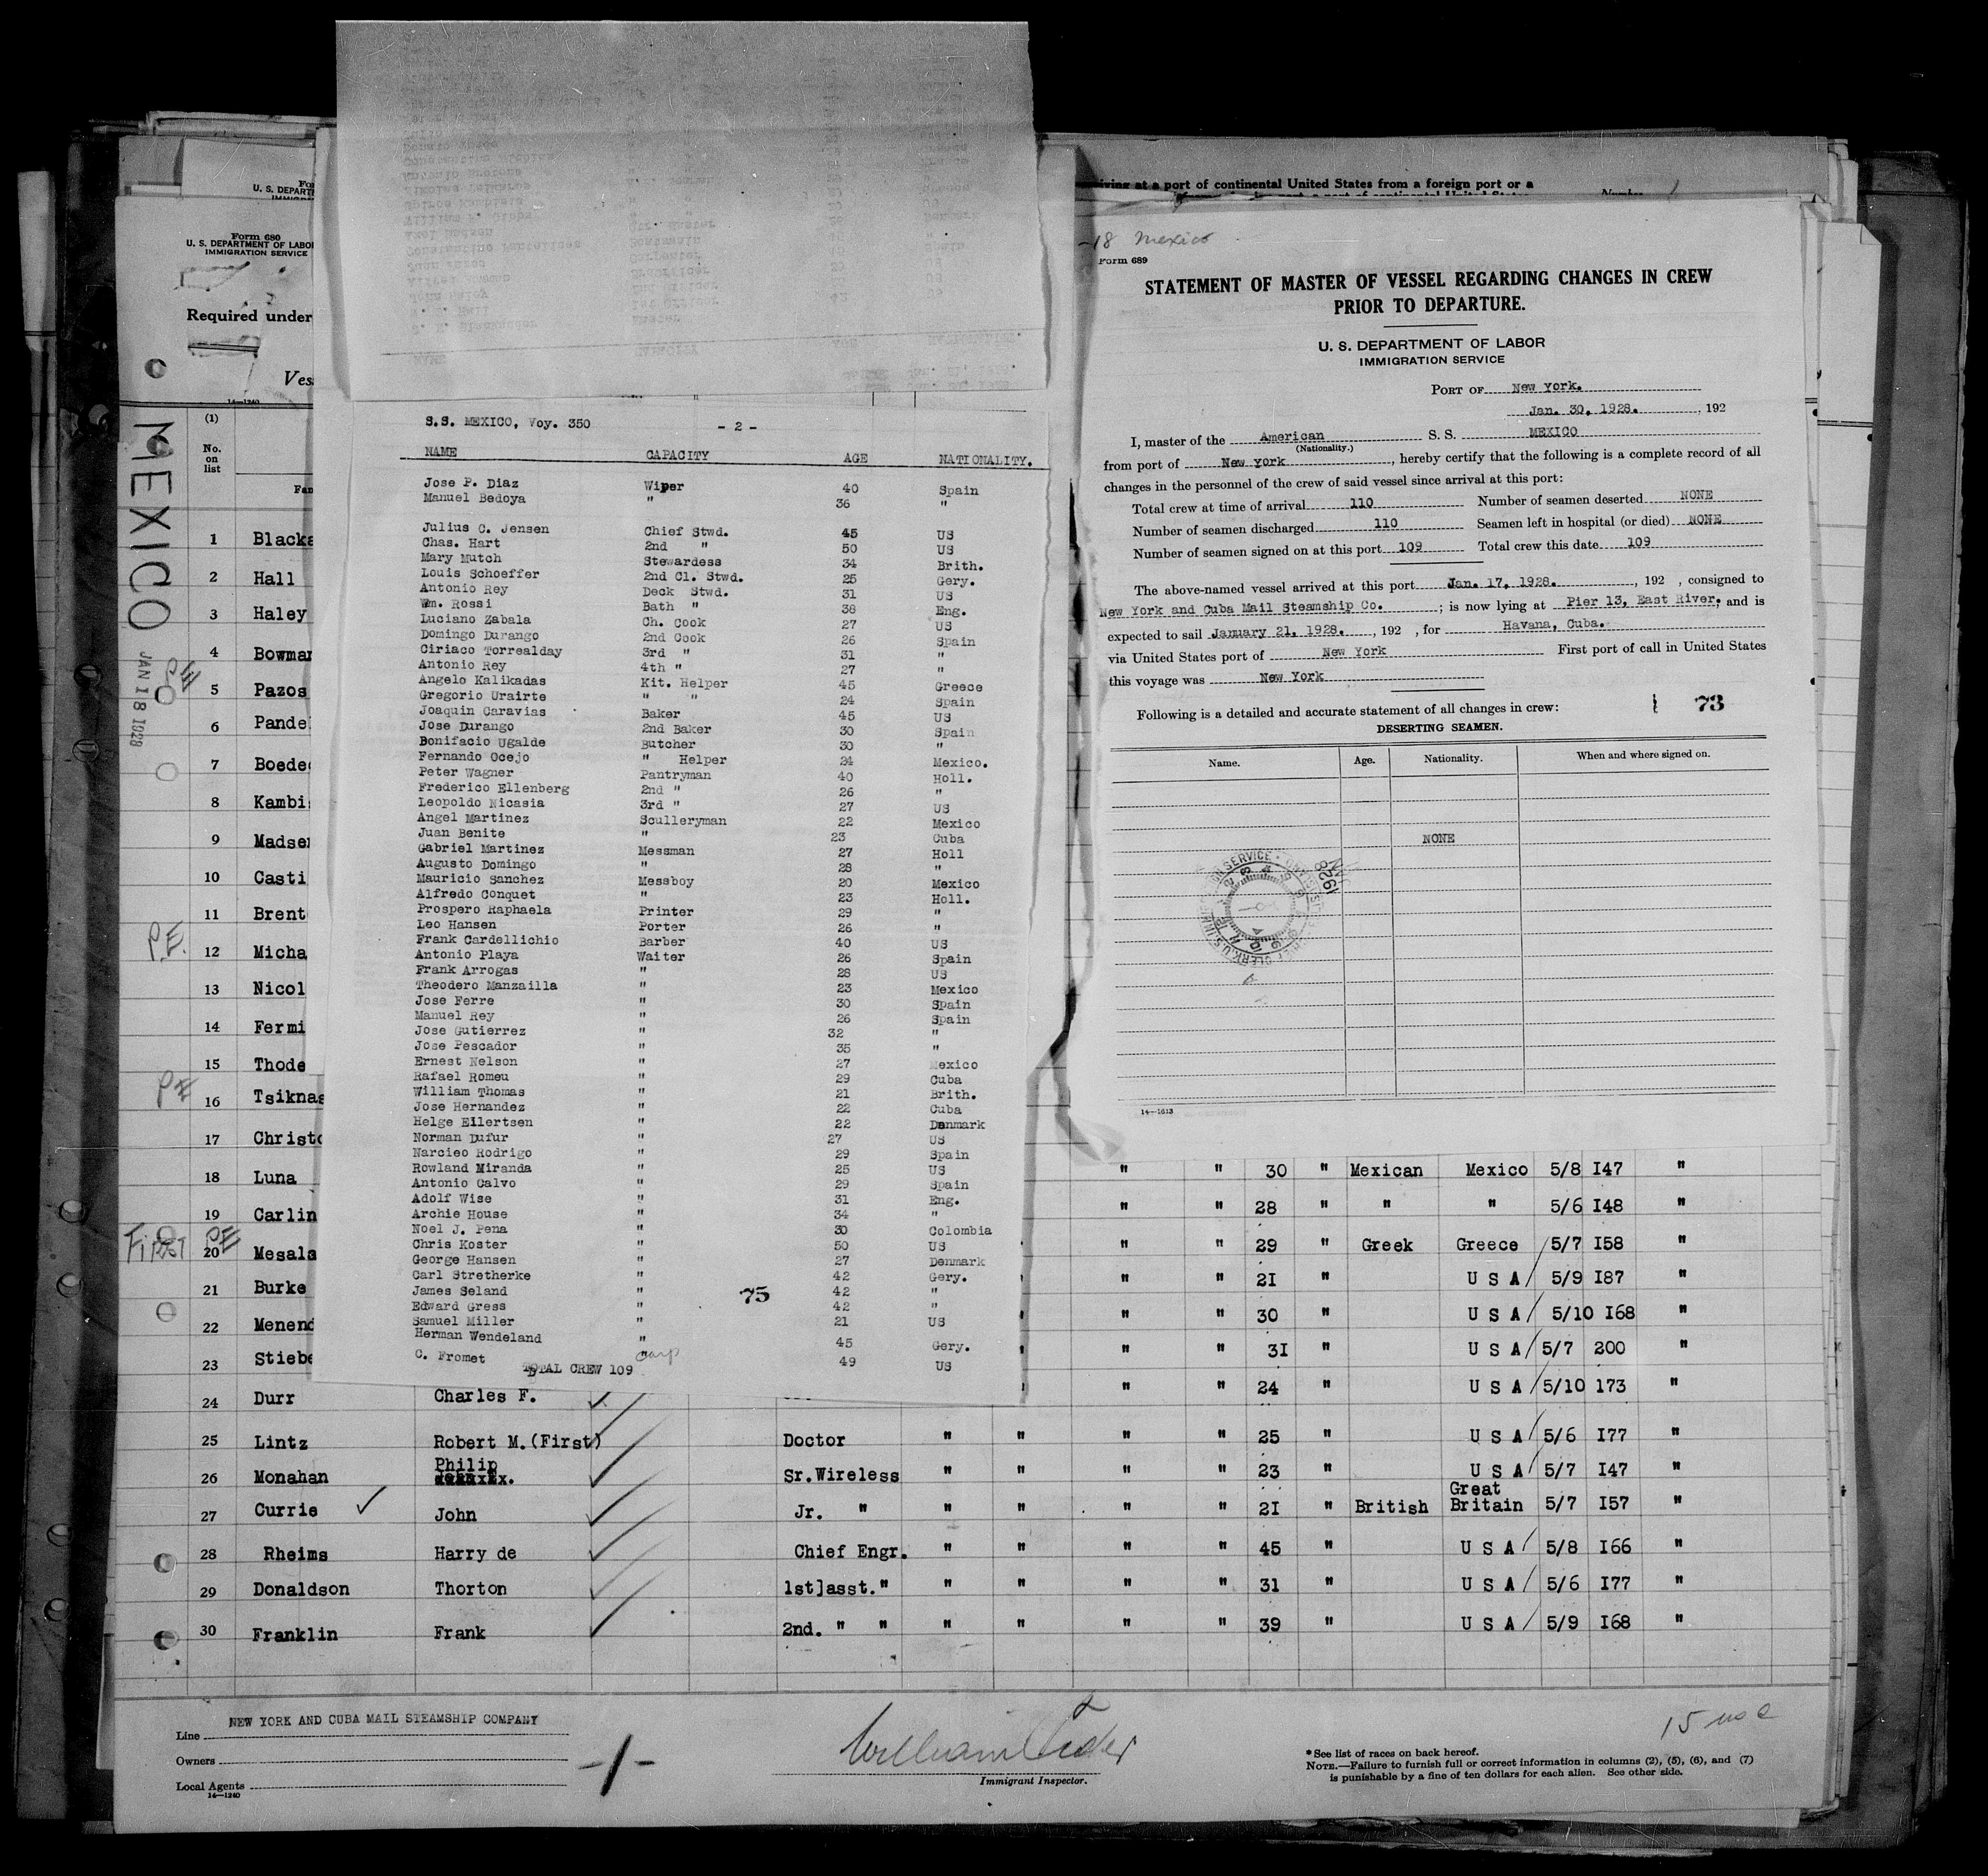 For
U. S. DEPART
Form 680
U. S. DEPARTMENT OF LABOR
IMMIGRATION SERVICE
Required under
Ves
14—1240
MEXICO JAN 18 1928
(1)
No.
on
list
Fam
1 Blacka
2 Hall
3 Haley
4 Bowman
PE
5 Pazos
6 Pande
7 Boeded
8 Kambi
9 Madsen
10 Casti
11 Brent
P.E. 12 Micha
13 Nicol
14 Fermi
15 Thode
PE 16 Tsiknas
17 Christo
18 Luna
19 Carlin
FIRST PE 20 Mesala
21 Burke
22 Menend
23 Stiebe
S.S. MEXICO, Voy. 350 - 2 -
NAME CAPACITY AGE NATIONALITY.
Jose P. Diaz Wiper 40 Spain
Manuel Bedoya " 36 "
Julius C. Jensen Chief Stwd. 45 US
Chas. Hart 2nd " 50 US
Mary Mutch Stewardess 34 Brith.
Louis Schoeffer 2nd Cl. Stwd. 25 Gery.
Antonio Rey Deck Stwd. 31 US
Wm. Rossi Bath " 38 Eng.
Luciano Zabala Ch. Cook 27 US
Domingo Durango 2nd Cook 26 Spain
Ciriaco Torrealday 3rd " 31 "
Antonio Rey 4th " 27 "
Angelo Kalikadas Kit. Helper 45 Greece
Gregorio Urairte " " 24 Spain
Joaquin Caravias Baker 45 US
Jose Durango 2nd Baker 30 Spain
Bonifacio Ugalde Butcher 30 "
Fernando Ocejo " Helper 24 Mexico.
Peter Wagner Pantryman 40 Holl.
Frederico Ellenberg 2nd " 26 "
Leopoldo Nicasia 3rd " 27 US
Angel Martinez Sculleryman 22 Mexico
Juan Benite " 23 Cuba
Gabriel Martinez Messman 27 Holl
Augusto Domingo " 28 "
Mauricio Sanchez Messboy 20 Mexico
Alfredo Conquet " 23 Holl.
Prospero Raphaela Printer 29 "
Leo Hansen Porter 26 "
Frank Cardellichio Barber 40 US
Antonio Playa Waiter 26 Spain
Frank Arrogas " 28 US
Theodero Manzailla " 23 Mexico
Jose Ferre " 30 Spain
Manuel Rey " 26 Spain
Jose Gutierrez " 32 "
Jose Pescador " 35 "
Ernest Nelson " 27 Mexico
Rafael Romeu " 29 Cuba
William Thomas " 21 Brith.
Jose Hernandez " 22 Cuba
Helge Eilertsen " 22 Denmark
Norman Dufur " 27 US
Narcieo Rodrigo " 29 Spain
Rowland Miranda " 25 US
Antonio Calvo " 29 Spain
Adolf Wise " 31 Eng.
Archie House " 34 "
Noel J. Pena " 30 Colombia
Chris Koster " 50 US
George Hansen " 27 Denmark
Carl Stretherke " 42 Gery.
James Seland " 75 42 "
Edward Gress " 42 "
Samuel Miller " 21 US
Herman Wendeland " 45 Gery.
C. Fromet Carp 49 US
TOTAL CREW 109
iving at a port of continental United States from a foreign port or a
Number 1
-18 Mexico
Form 689
STATEMENT OF MASTER OF VESSEL REGARDING CHANGES IN CREW
PRIOR TO DEPARTURE.
U. S. DEPARTMENT OF LABOR
IMMIGRATION SERVICE
PORT OF New York.
Jan. 30, 1928. , 192
I, master of the American S. S. MEXICO
(Nationality.)
from port of New York , hereby certify that the following is a complete record of all
changes in the personnel of the crew of said vessel since arrival at this port:
Total crew at time of arrival 110 Number of seamen deserted NONE
Number of seamen discharged 110 Seamen left in hospital (or died) NONE
Number of seamen signed on at this port 109 Total crew this date 109
The above-named vessel arrived at this port Jan. 17, 1928. , 192 , consigned to
New York and Cuba Mail Steamship Co. ; is now lying at Pier 13, East River. ; and is
expected to sail January 21, 1928. , 192 , for Havana, Cuba.
via United States port of New York First port of call in United States
this voyage was New York
Following is a detailed and accurate statement of all changes in crew: 73
DESERTING SEAMEN.
Name. Age. Nationality. When and where signed on.
NONE
1928
14—1613
" " 30 " Mexican Mexico 5/8 I47 "
" " 28 " " " 5/6 I48 "
" " 29 " Greek Greece 5/7 I58 "
" " 2I " U S A 5/9 I87 "
" " 30 " U S A 5/10 I68 "
" " 3I " U S A 5/7 200 "
24 Durr Charles F. " " 24 " U S A 5/10 173 "
25 Lintz Robert M.(First) Doctor " " " " 25 " U S A 5/6 I77 "
26 Monahan Philip Sr.Wireless " " " " 23 " U S A 5/7 I47 "
27 Currie John Jr. " " " " " 2I " British Great Britain 5/7 I57 "
28 Rheims Harry de Chief Engr. " " " " 45 " U S A 5/8 I66 "
29 Donaldson Thorton 1st]asst." " " " " 31 " U S A 5/6 I77 "
30 Franklin Frank 2nd. " " " " " " 39 " U S A 5/9 I68 "
Line NEW YORK AND CUBA MAIL STEAMSHIP COMPANY
Owners
Local Agents
14—1240
-1-
William
Immigrant Inspector.
15 usc
* See list of races on back hereof.
NOTE.—Failure to furnish full or correct information in columns (2), (5), (6), and (7)
is punishable by a fine of ten dollars for each alien. See other side.